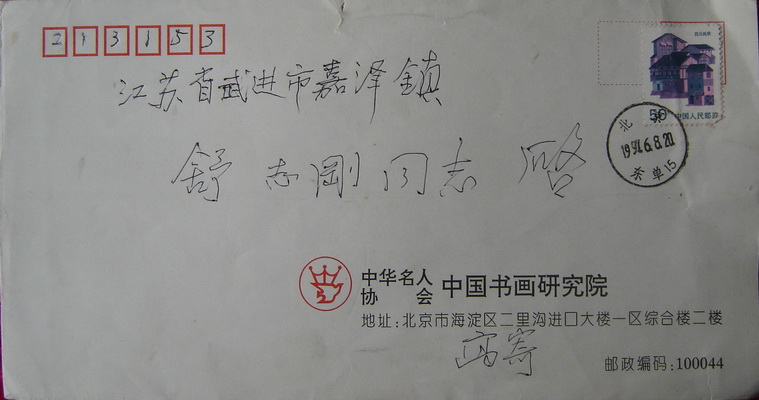 213153
江苏省武进市嘉泽镇
舒志刚同志 启
50 中国人民邮政
北京
1996.8.20
15
中华名人协会 中国书画研究院
地址:北京市海淀区二里沟进口大楼一区综合楼二楼
高寄
邮政编码:100044